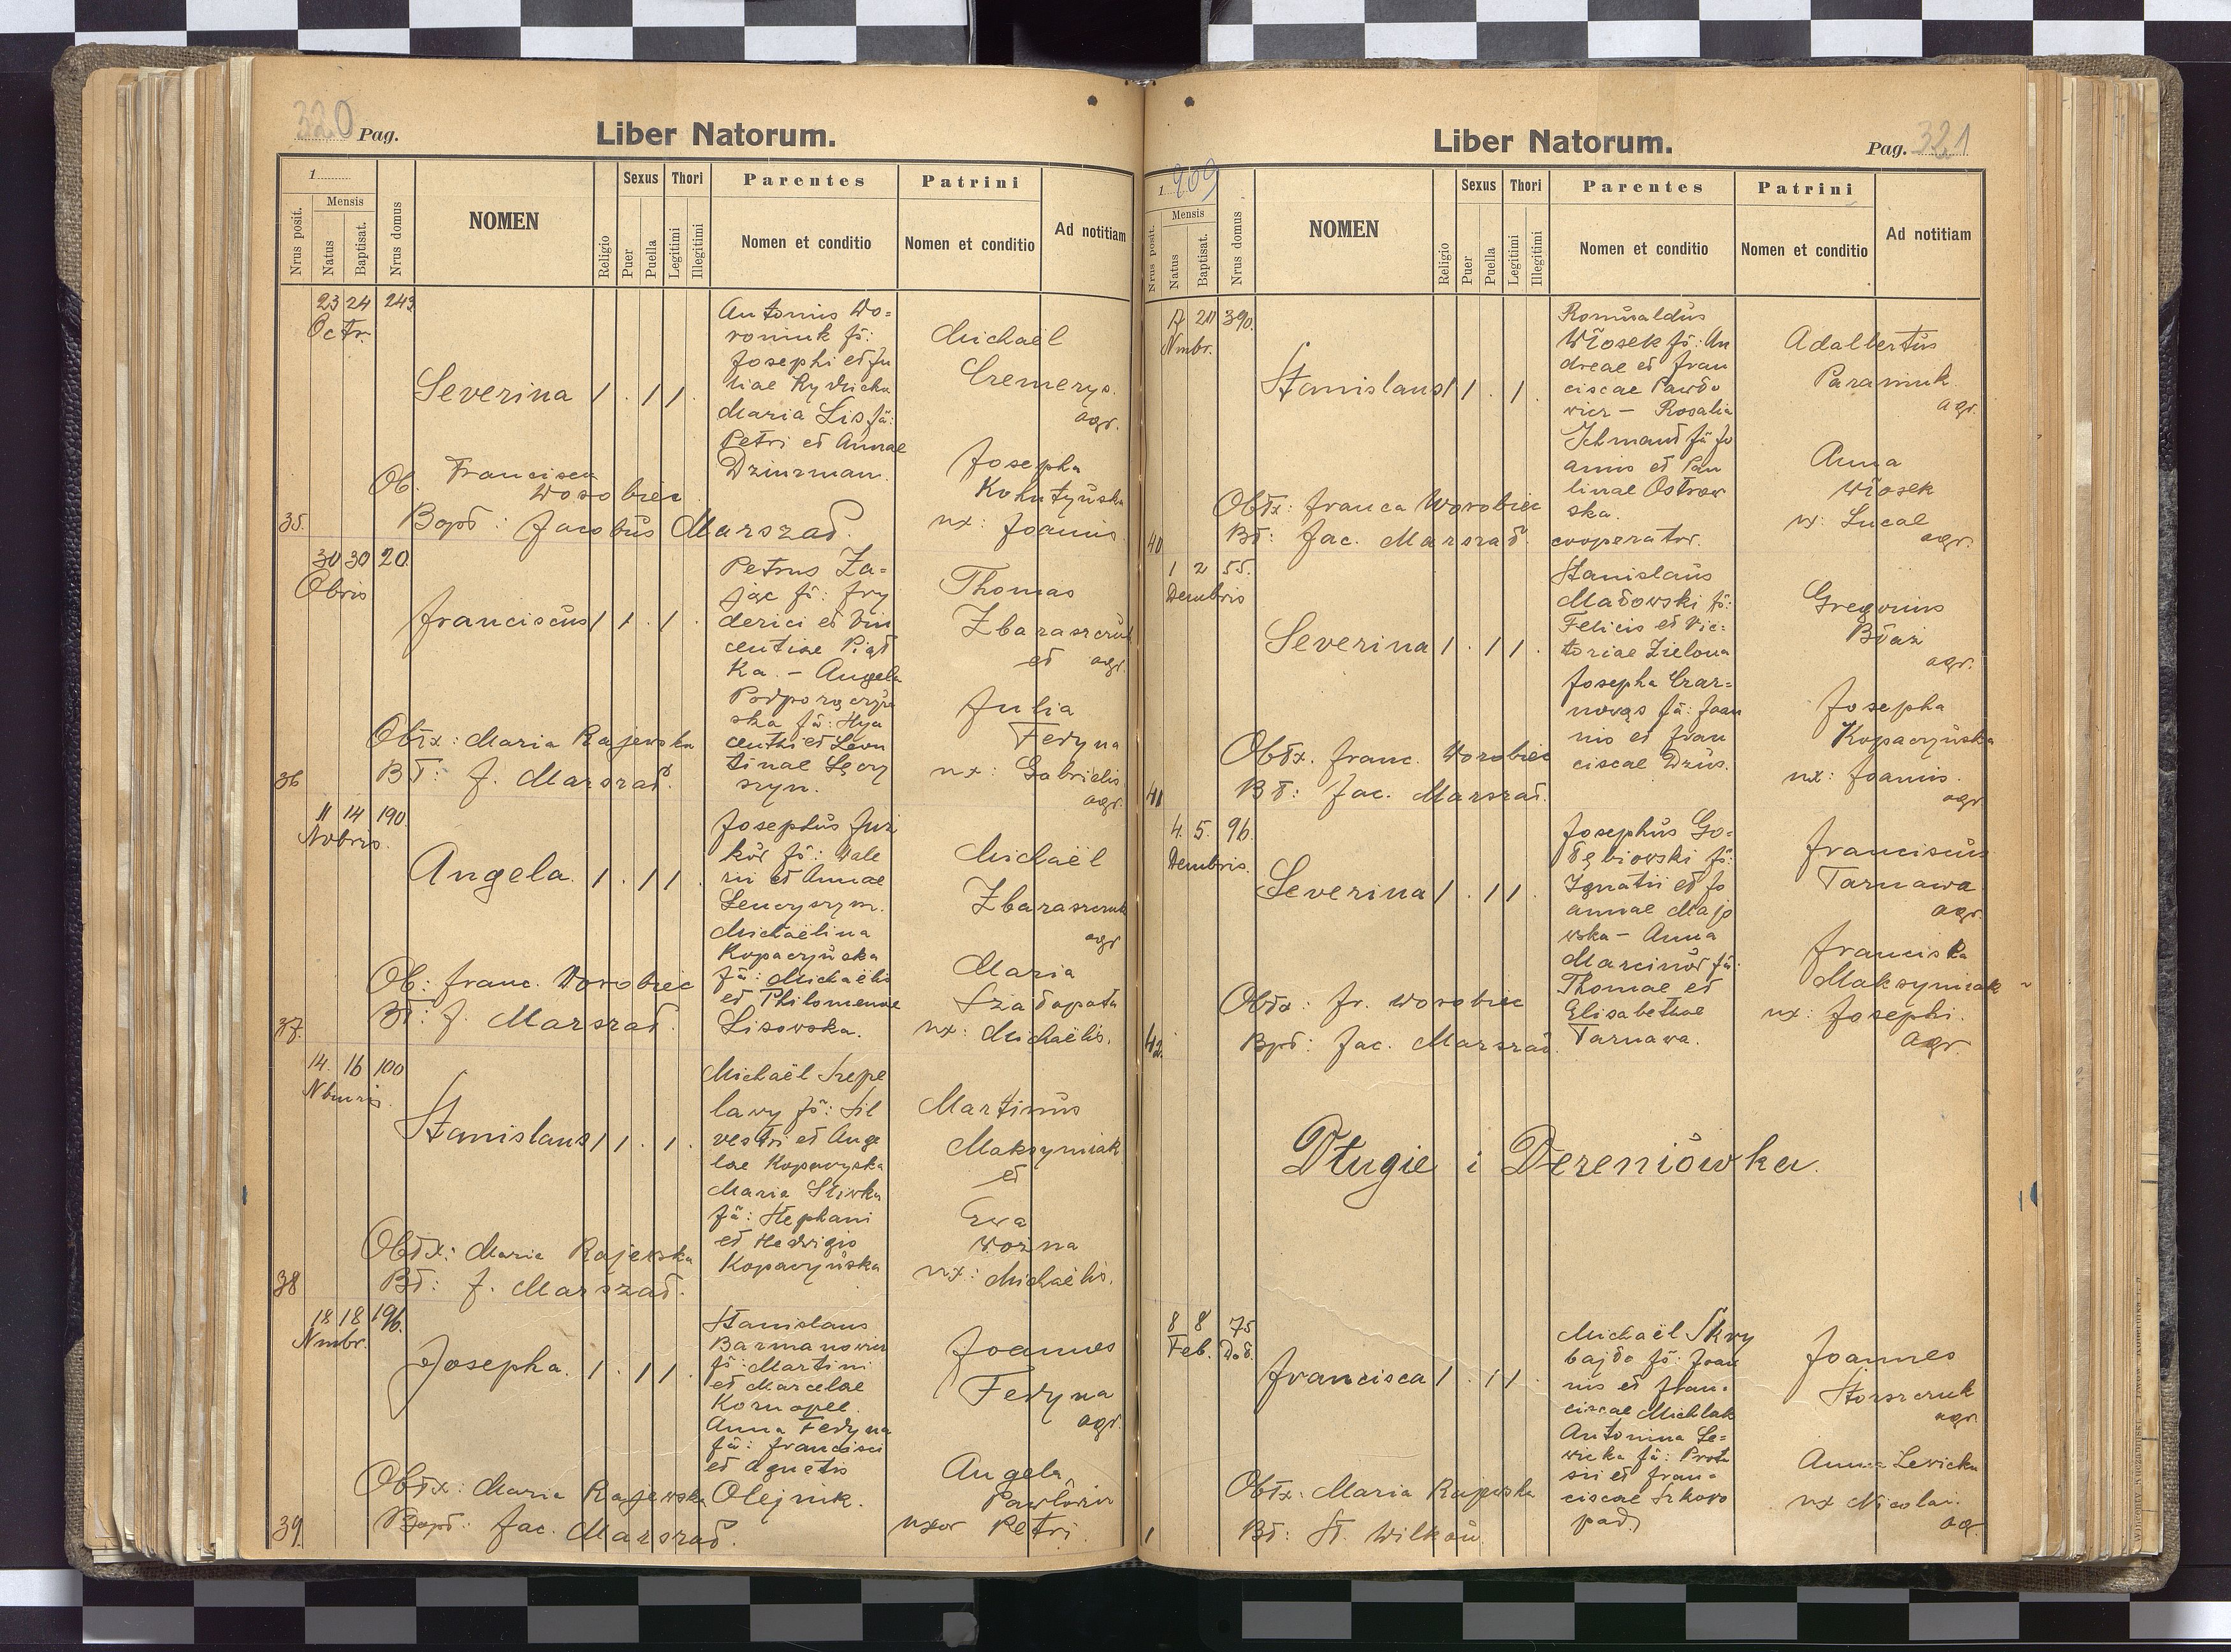 320 Pag.
Liber Natorum.
1
Nrus posit.
Mensis
Natus
Baptisat.
Nrus domus
NOMEN
Religio
Sexus
Puer
Puella
Thori
Legitimi
Illegitimi
Parentes
Nomen et conditio
Patrini
Nomen et conditio
Ad notitiam
23 24 243
Octr.
Severina 1 . 1 1 .
Antonius Wo=
roniuk fs:
Josephi et Ju
liae
Maria Lis fa:
Petri et Annae
Dziurman.
Michaël
Cremerys.
agr.
Josepha
Kohutyńska
ux: Joannis
Ob. Francisca
Worobiec
35. Bapt: Jacobus Marszał.
30 30 20
Obris
Franciscus 1 1 . 1 .
Petrus Za=
jąc fs: Fry
derici et Vin
centiae Piąt
ka. - Angela
Podporączyń
ska fa: Hya
centhi et Leon
tinae Leczy
szyn.
Thomas
Zbaraszczuk
et agr.
Julia
Fedyna
ux: Gabrielis
agr.
Obtx: Maria Rajewska
36 Bt: J. Marszał.
11 14 190
Nobris.
Angela. 1 . 1 1 .
Josephus
fs: Wale
rii et Annae
Lenczyszyn.
Michaëlina
Kopaczyńska
fa: Michaëlis
et Philomenae
Lisowska.
Michaël
Zbaraszczuk
agr
Maria
Szadopata
ux: Michaëlis.
Ob: Franc. Worobiec
37. Bt: J. Marszał.
14. 16 100
Stanislaus 1 1 . 1 .
Michaël Szepe
lawy fs: Sil
vestri et Ange
lae Kopaczyska
Maria Sliwka
fa: Stephani
et Hedvigis
Kopaczyńska
Martinus
Maksymiak
et
Ewa
Woźna
ux: Michaëlis.
Obtx: Maria Rajewska
38 Bt: J. Marszał.
18 18 196.
Nmbr.
Josepha. 1 . 1 1 .
Stanislaus
Barmanowicz
fs: Martini
et Marcelae
Kornopel.
Anna Fedyna
fa: Francisci
et Agnetis
Olejnik.
Joannes
Fedyna
agr.
Angela
Pawłowicz
uxor Petri.
Obtx: Maria Rajewska
39. Bapt: Jac. Marszał.
Liber Natorum.
Pag. 321
1909
Nrus posit.
Mensis
Natus
Baptisat.
Nrus domus
NOMEN
Religio
Sexus
Puer
Puella
Thori
Legitimi
Illegitimi
Parentes
Nomen et conditio
Patrini
Nomen et conditio
Ad notitiam
17 20 390.
Nmbr.
Stanislaus 1 1 . 1 .
Romualdus
Włosek fs: An
dreae et Fran
ciscae Pawło
wicz - Rosalia
Schmand fa Jo
annis et Pau
linae Ostrow
ska.
Adalbertus
Paraniuk
agr.
Anna
Włosek
ux: Lucae
agr.
Obtx: Franca Worobiec
40 Bt: Jac. Marszał. cooperator.
1 2 55.
Dembris
Severina 1 . 1 1 .
Stanislaus
Madowski fs:
Felicis et Vic=
toriae Zielona
Josepha Czar=
nowąs fa: Joan
nis et Fran
ciscae Dziús.
Gregorius
Błaż
agr.
Josepha
Kopaczyńska
ux: Joannis.
agr
Obtx. Franc. Worobiec
41 Bt: Jac. Marszał.
4. 5. 96.
Dembris.
Severina 1 . 1 1 .
Josephus Go=
łębiowski fs:
Ignatii et Jo
annae Majo
wska - Anna
Marciniów fa:
Thomae et
Elisabethae
Tarnawa.
Franciscus
Tarnawa
agr.
Franciska
Maksymiak
ux: Josephi.
agr.
Obtx: Fr. Worobiec
42. Bpt: Jac. Marszał.
Długie i Dereniówka.
8 8 75
Feb. Dod.
Francisca 1 . 1 1 .
Michaël Skry
bajło fs: Joan
nis et Fran=
ciscae Michlak
Antonina Le=
wicka fa: Prota
sii et Fran=
ciscae Szkoro
pad)
Joannes
Storszczuk
agr
Anna Lewicka
ux Nicolai.
ag.
Obtx. Maria Rajewska
1 Bt: St. Wilkoń